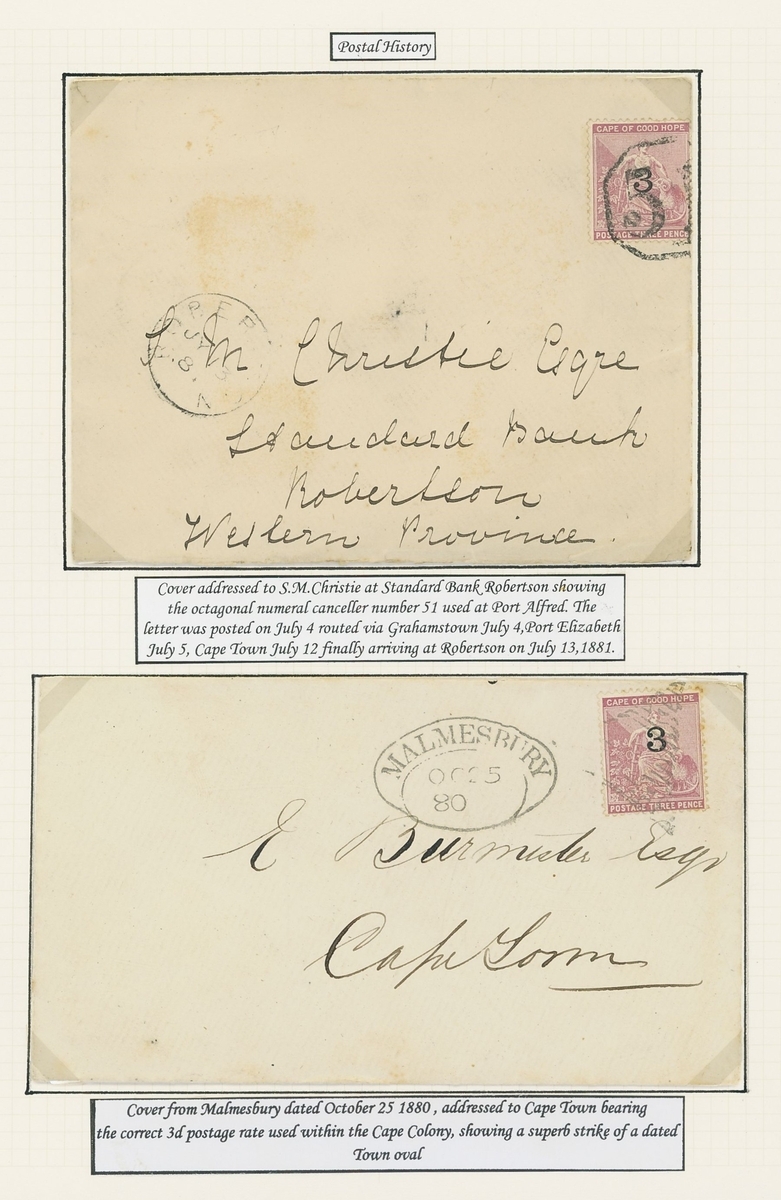 Postal History
CAPE OF GOOD HOPE
3
POSTAGE THREE PENCE
S M Christie Esqre
Standard Bank
Robertson
Western Province.
Cover addressed to S.M.Christie at Standard Bank Robertson showing
the octagonal numeral canceller number 51 used at Port Alfred. The
letter was posted on July 4 routed via Grahamstown July 4,Port Elizabeth
July 5, Cape Town July 12 finally arriving at Robertson on July 13,1881.
CAPE OF GOOD HOPE
3
POSTAGE THREE PENCE
MALMESBURY
OC 25
80
E Burmester Esqr
Cape Town
Cover from Malmesbury dated October 25 1880 , addressed to Cape Town bearing
the correct 3d postage rate used within the Cape Colony, showing a superb strike of a dated
Town oval